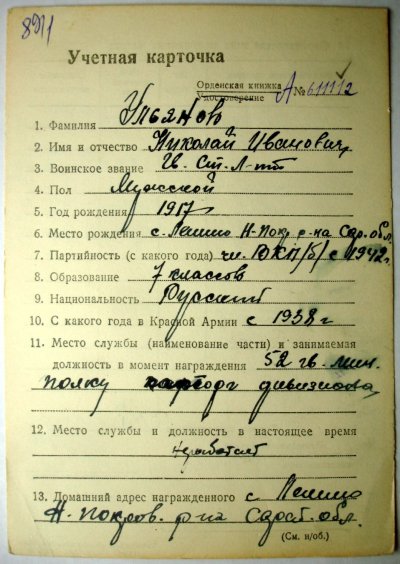 8911
Учетная карточка
Орденская книжка
Удостоверение А № 611112
1. Фамилия Ульянов
2. Имя и отчество Николай Иванович
3. Воинское звание Гв. Ст. Л-т
4. Пол Мужской
5. Год рождения 1917
6. Место рождения с. Н-Пок. р-на Сар. обл.
7. Партийность (с какого года) чл. ВКП/б/ с 1942 г.
8. Образование 7 классов
9. Национальность Русский
10. С какого года в Красной Армии с 1938 г
11. Место службы (наименование части) и занимаемая
должность в момент награждения 52 гв. мин.
полку парторг дивизиона
12. Место службы и должность в настоящее время
13. Домашний адрес награжденного с
Н. Покров. р-на Сарат. обл.
(См. н/об.)